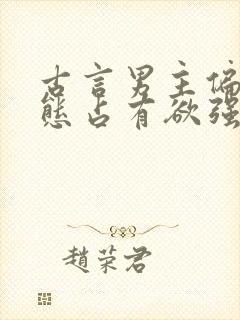 古言男主偏
態占有欲强
趙荣君